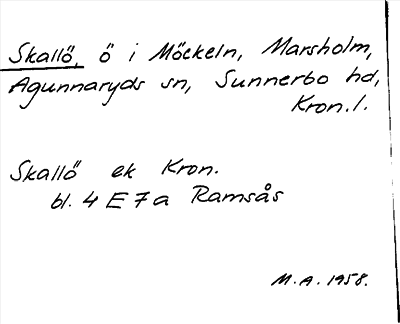 Skallö, ö i Möckeln, Marsholm,
Agunnaryds sn, Sunnerbo hd,
Kron.l.
Skallö ek Kron.
bl. 4 E 7 a Ramsås
M.A. 1958.